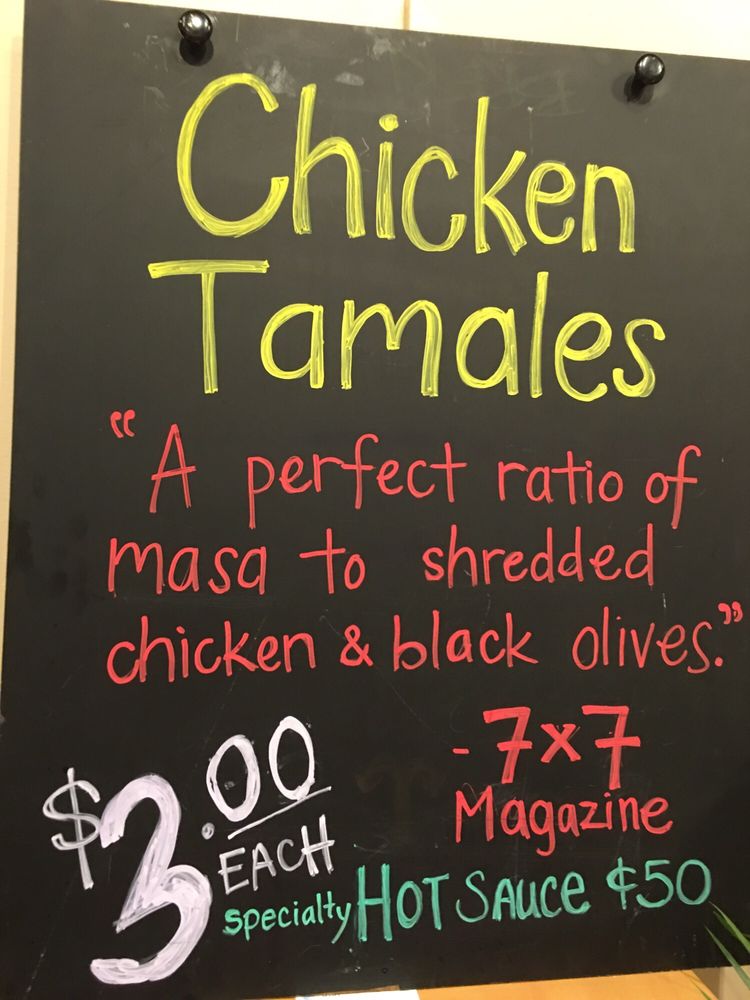 Chicken
Tamales
"A perfect ratio of
masa to shredded
chicken & black olives."
- 7x7
Magazine
$3.00
EACH
specialty HOT SAUCE ¢50